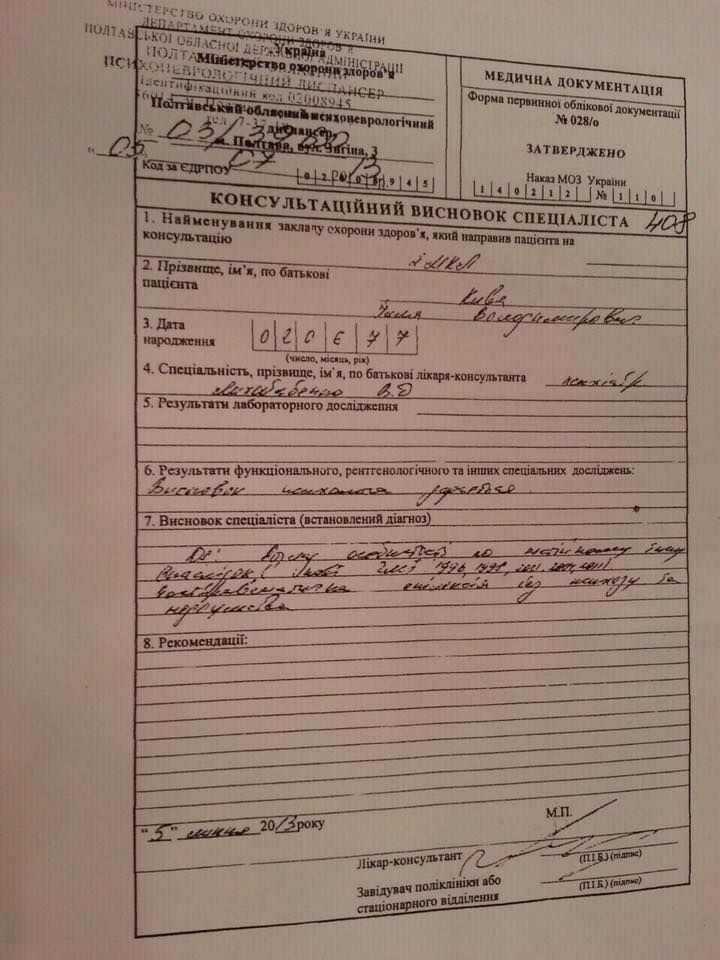 МІНІСТЕРСТВО ОХОРОНИ ЗДОРОВ'Я УКРАЇНИ
ДЕПАРТАМЕНТ ОХОРОНИ ЗДОРОВ'Я
ПОЛТАВСЬКОЇ ОБЛАСНОЇ ДЕРЖАВНОЇ АДМІНІСТРАЦІЇ
ПСИХОНЕВРОЛОГІЧНИЙ ДИСПАНСЕР
Ідентифікаційний код 02008945
Україна
Міністерство охорони здоров'я
Полтавський обласний психоневрологічний
диспансер
м. Полтава, вул. 3
№ 03/
"05 07 2013
Код за ЄДРПОУ 02008945
МЕДИЧНА ДОКУМЕНТАЦІЯ
Форма первинної облікової документації
№ 028/о
ЗАТВЕРДЖЕНО
Наказ МОЗ України
140212 № 110
КОНСУЛЬТАЦІЙНИЙ ВИСНОВОК СПЕЦІАЛІСТА 408
1. Найменування закладу охорони здоров'я, який направив пацієнта на
консультацію
МКЛ
2. Прізвище, ім'я, по батькові
пацієнта
Кива
Ілля Володимирович
3. Дата
народження 020677
(число, місяць, рік)
4. Спеціальність, прізвище, ім'я, по батькові лікаря-консультанта психіатр
В.О
5. Результати лабораторного дослідження
6. Результати функціонального, рентгенологічного та інших спеціальних досліджень:
Висновок психолога
7. Висновок спеціаліста (встановлений діагноз)
Ds: особистості по типу
внаслідок ЧМТ 1996, 1998, 2001
Посттравматична епілепсія без психозу та
недоумства
8. Рекомендації:
"5" липня 2013 року
М.П.
Лікар-консультант
(П.І.Б.) (підпис)
Завідувач поліклініки або
стаціонарного відділення
(П.І.Б.) (підпис)